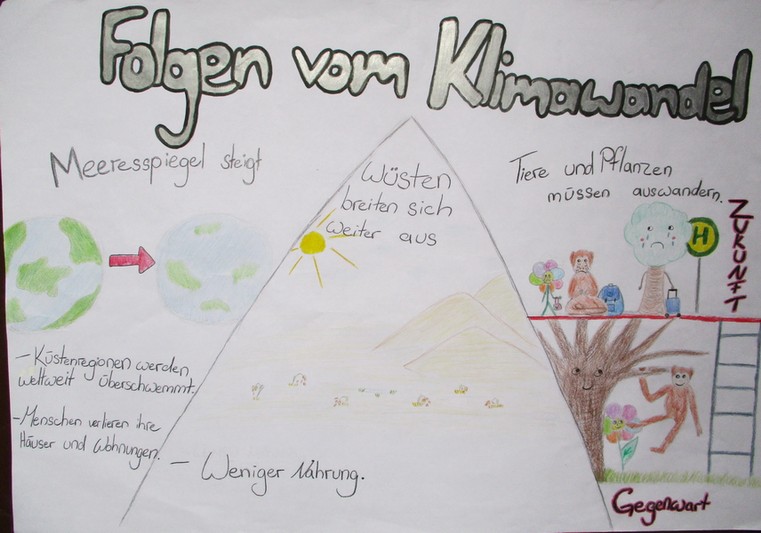 Folgen vom Klimawandel
Meeresspiegel steigt
- Küstenregionen werden
weltweit überschwemmt.
- Menschen verlieren ihre
Häuser und Wohnungen.
Wüsten
breiten sich
weiter aus
- Weniger Nahrung.
Tiere und Pflanzen
müssen auswandern.
H
ZUKUNFT
Gegenwart